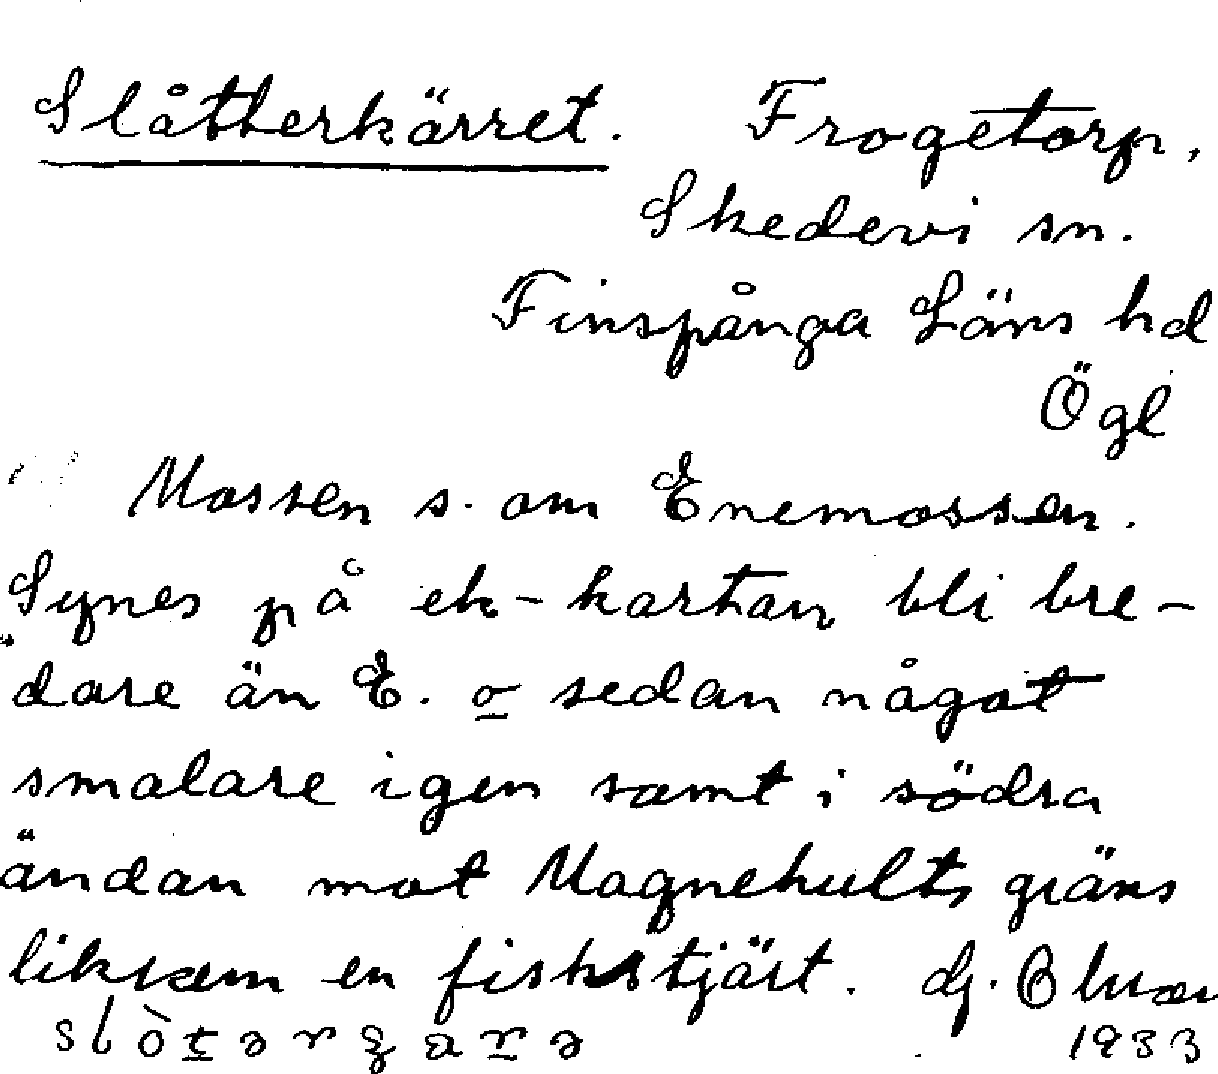 Slåtterkärret. Frogetorp,
Skedevi sn.
Finspånga Läns hd
Ögl
Mossen s. om Enemossen.
Synes på ek-kartan bli bre-
dare än E. o sedan något
smalare igen samt i södra
ändan mot Magnehults gräns
liksom en fiskstjärt. dj.
1933